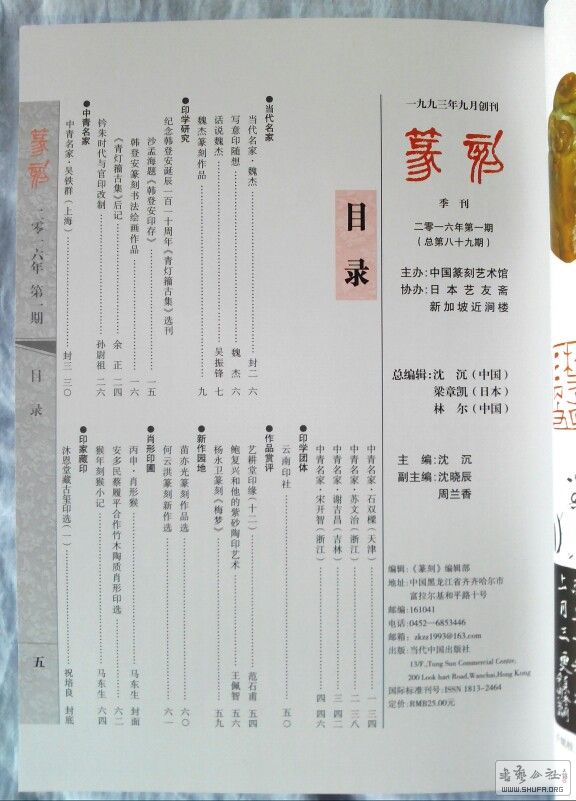 一九九三年九月创刊
篆刻
季刊
二零一六年第一期
(总第八十九期)
主办:中国篆刻艺术馆
协办:日本艺友斋
新加坡近涧楼
总编辑:沈 沉(中国)
梁章凯(日本)
林 尔(中国)
主 编:沈 沉
副主编:沈晓辰
周兰香
编辑:《篆刻》编辑部
地址:中国黑龙江省齐齐哈尔市
富拉尔基和平路十号
邮编:161041
电话:0452—6853446
邮箱:zkzz1993@163.com
出版:当代中国出版社
13/F.,Tung Sun Commercial Center,
200 Lock hart Road,Wanchai,Hong Kong
国际标准刊号:ISSN 1813-2464
定价:RMB25.00元
目录
●当代名家
当代名家·魏杰 封二 六
写意印随想 魏杰 六
话说魏杰 吴振锋 七
魏杰篆刻作品 九
●印学研究
纪念韩登安诞辰一百一十周年《青灯籀古集》选刊
沙孟海题《韩登安印存》 一五
韩登安篆刻书法绘画作品 一六
《青灯籀古集》后记 余正 二四
钤朱时代与官印改制 孙慰祖 二六
●中青名家
中青名家·吴铁群(上海) 封三 三〇
中青名家·石双樑(天津) 一 三四
中青名家·苏文治(浙江) 二 三八
中青名家·谢吉昌(吉林) 三 四二
中青名家·宋开智(浙江) 四 四六
●印学团体
云南印社 五〇
●作品赏评
艺耕堂印缘(十二) 范石甫 五四
鲍复兴和他的紫砂陶印艺术 王佩智 五六
●新作园地
杨永卫篆刻《梅梦》 五九
苗亦洪篆刻作品选 六〇
何云洪篆刻新作选 六一
●肖形印圃
丙申·肖形猴 马东生 封面
安多民蔡履平合作竹木陶质肖形印选 六二
猴年刻猴小记 马东生 六四
●印家藏印
沐恩堂藏古玺印选(一) 祝培良 封底
篆刻
二零一六年 第一期
目录
五
WWW.SHUFA.ORG